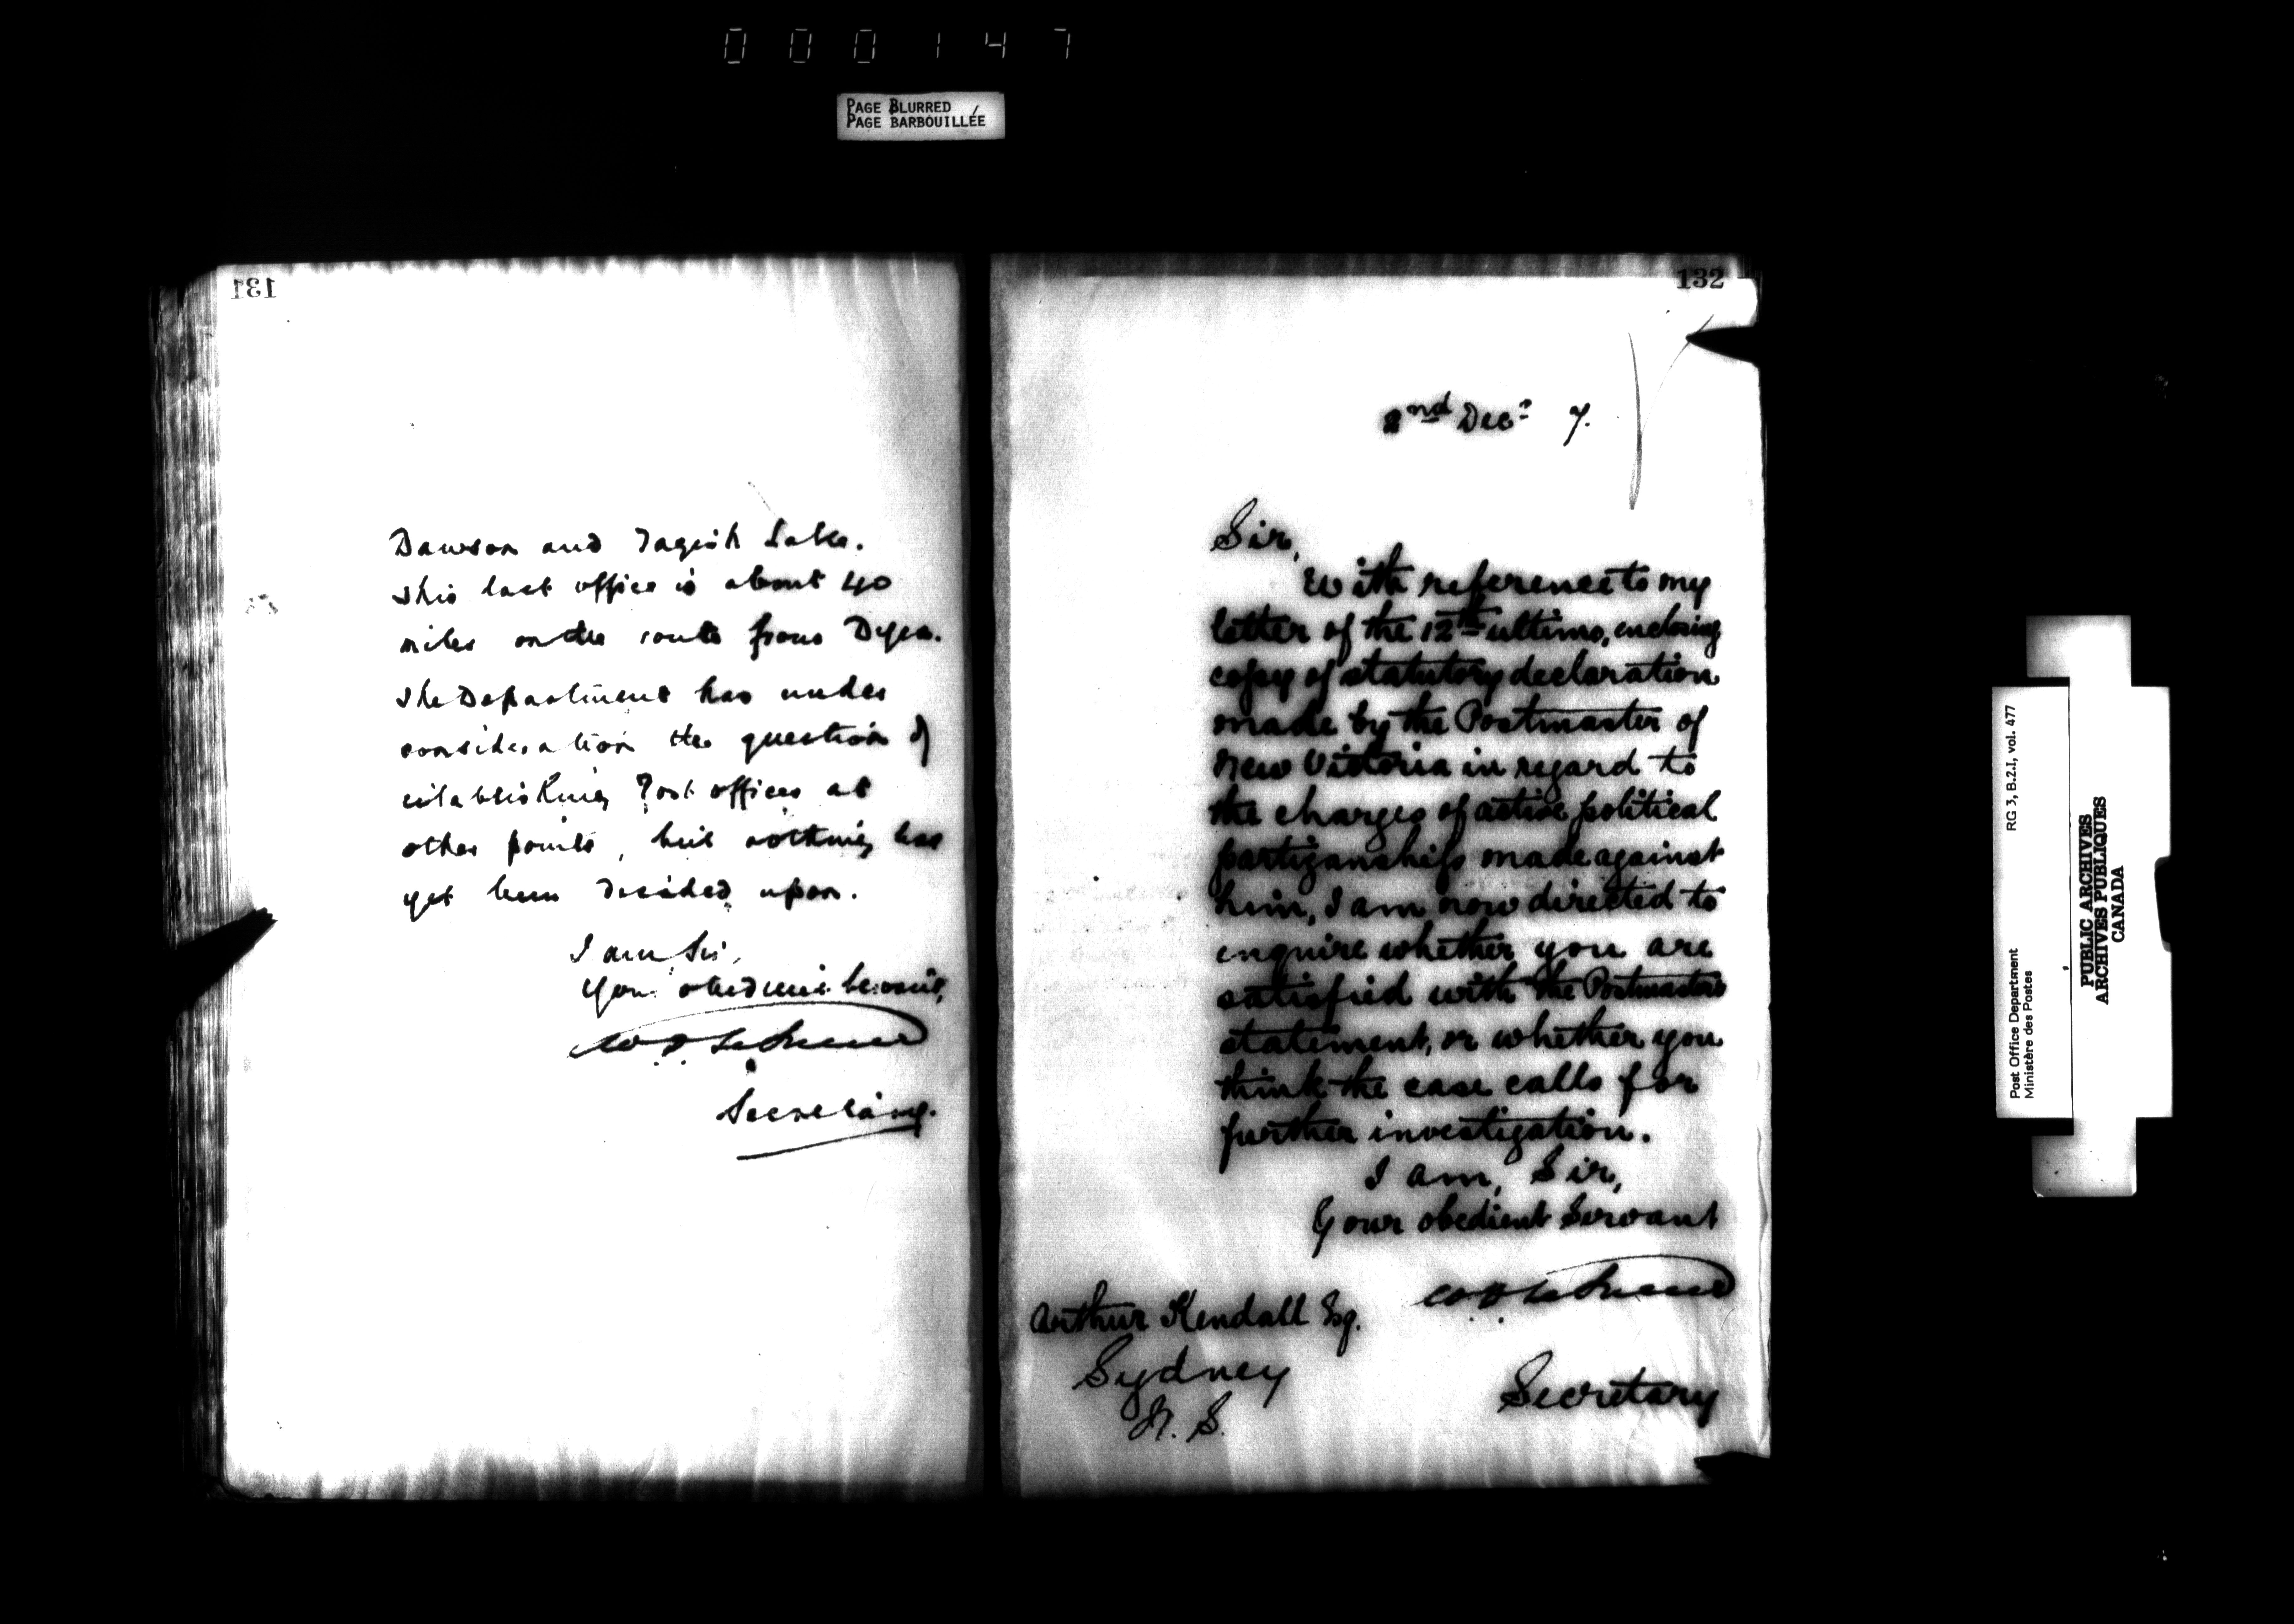 000147
PAGE BLURRED
PAGE BARBOUILLÉE
131
Dawson and Tagish Lake.
This last office is about 40
miles on the route from Dyea.
The Department has under
consideration the question of
establishing Post offices at
other points, but nothing has
yet been decided upon.
I am Sir,
Your obedient Servant,
Secretary.
132
2nd Decr 7.
Sir,
With reference to my
letter of the 12th ultimo, enclosing
copy of statutory declaration
made by the Postmaster of
New Victoria in regard to
the charges of active political
partizanship made against
him, I am now directed to
enquire whether you are
satisfied with the Postmasters
statement, or whether you
think the case calls for
further investigation.
I am, Sir,
Your obedient Servant
Arthur Kendall Esq.
Sydney
N. S.
Secretary
Post Office Department
Ministère des Postes
RG 3, B.2.I, vol. 477
PUBLIC ARCHIVES
ARCHIVES PUBLIQUES
CANADA